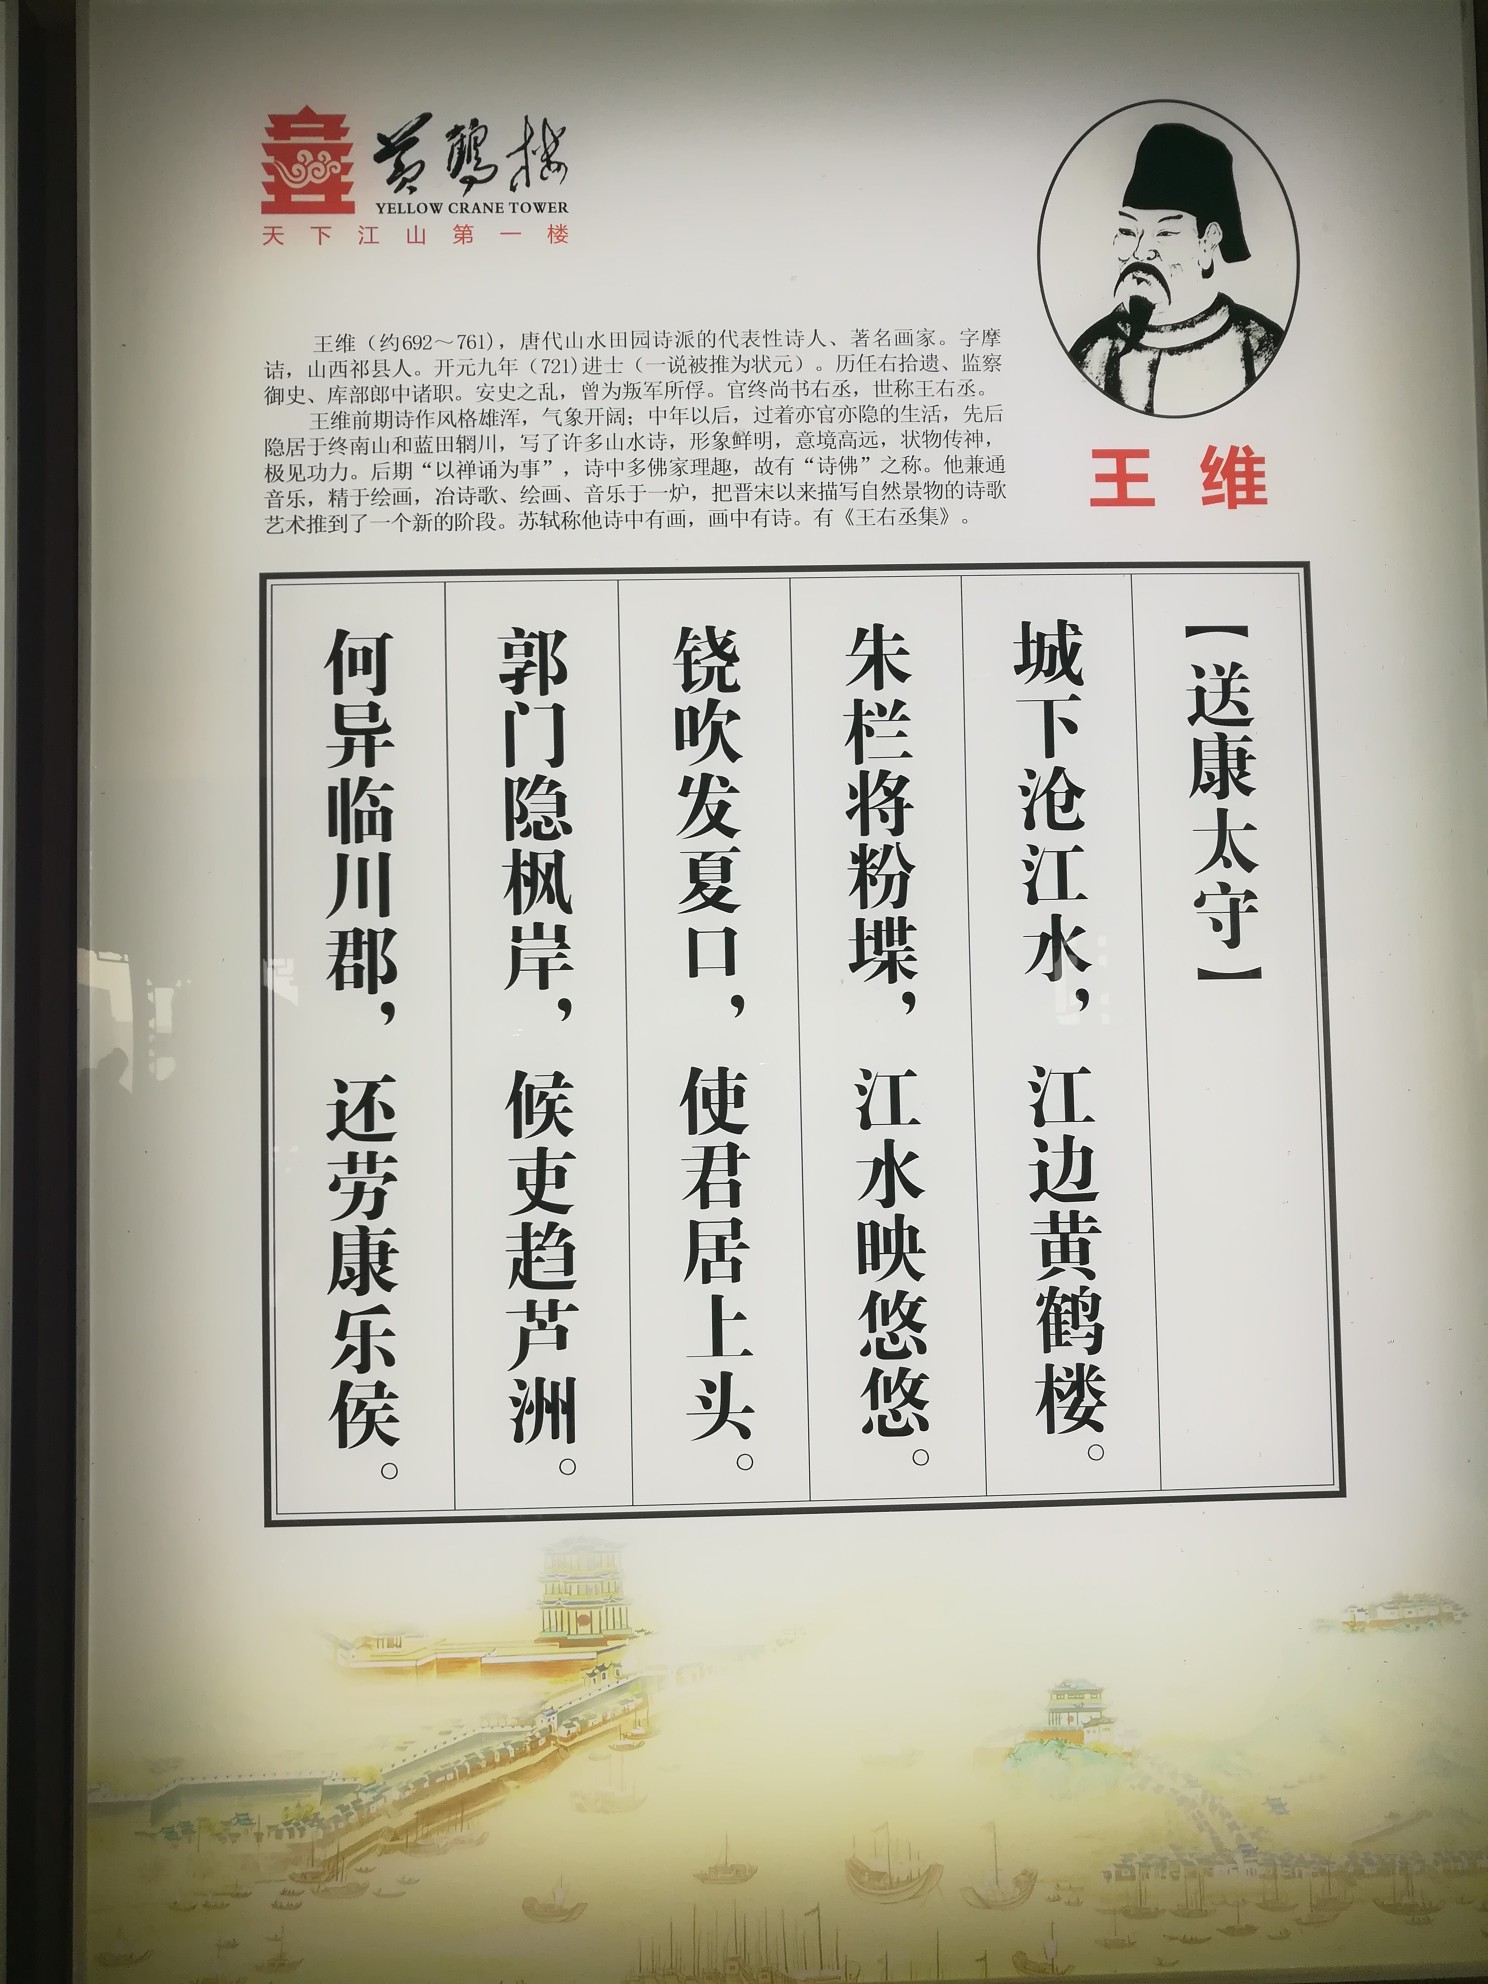 黄鹤楼
YELLOW CRANE TOWER
天下江山第一楼
王维（约692～761），唐代山水田园诗派的代表性诗人、著名画家。字摩
诘，山西祁县人。开元九年（721)进士（一说被推为状元）。历任右拾遗、监察
御史、库部郎中诸职。安史之乱，曾为叛军所俘。官终尚书右丞，世称王右丞。
王维前期诗作风格雄浑，气象开阔；中年以后，过着亦官亦隐的生活，先后
隐居于终南山和蓝田辋川，写了许多山水诗，形象鲜明，意境高远，状物传神，
极见功力。后期“以禅诵为事”，诗中多佛家理趣，故有“诗佛”之称。他兼通
音乐，精于绘画，冶诗歌、绘画、音乐于一炉，把晋宋以来描写自然景物的诗歌
艺术推到了一个新的阶段。苏轼称他诗中有画，画中有诗。有《王右丞集》。
王维
【送康太守】
城下沧江水，江边黄鹤楼。
朱栏将粉堞，江水映悠悠。
铙吹发夏口，使君居上头。
郭门隐枫岸，候吏趋芦洲。
何异临川郡，还劳康乐侯。